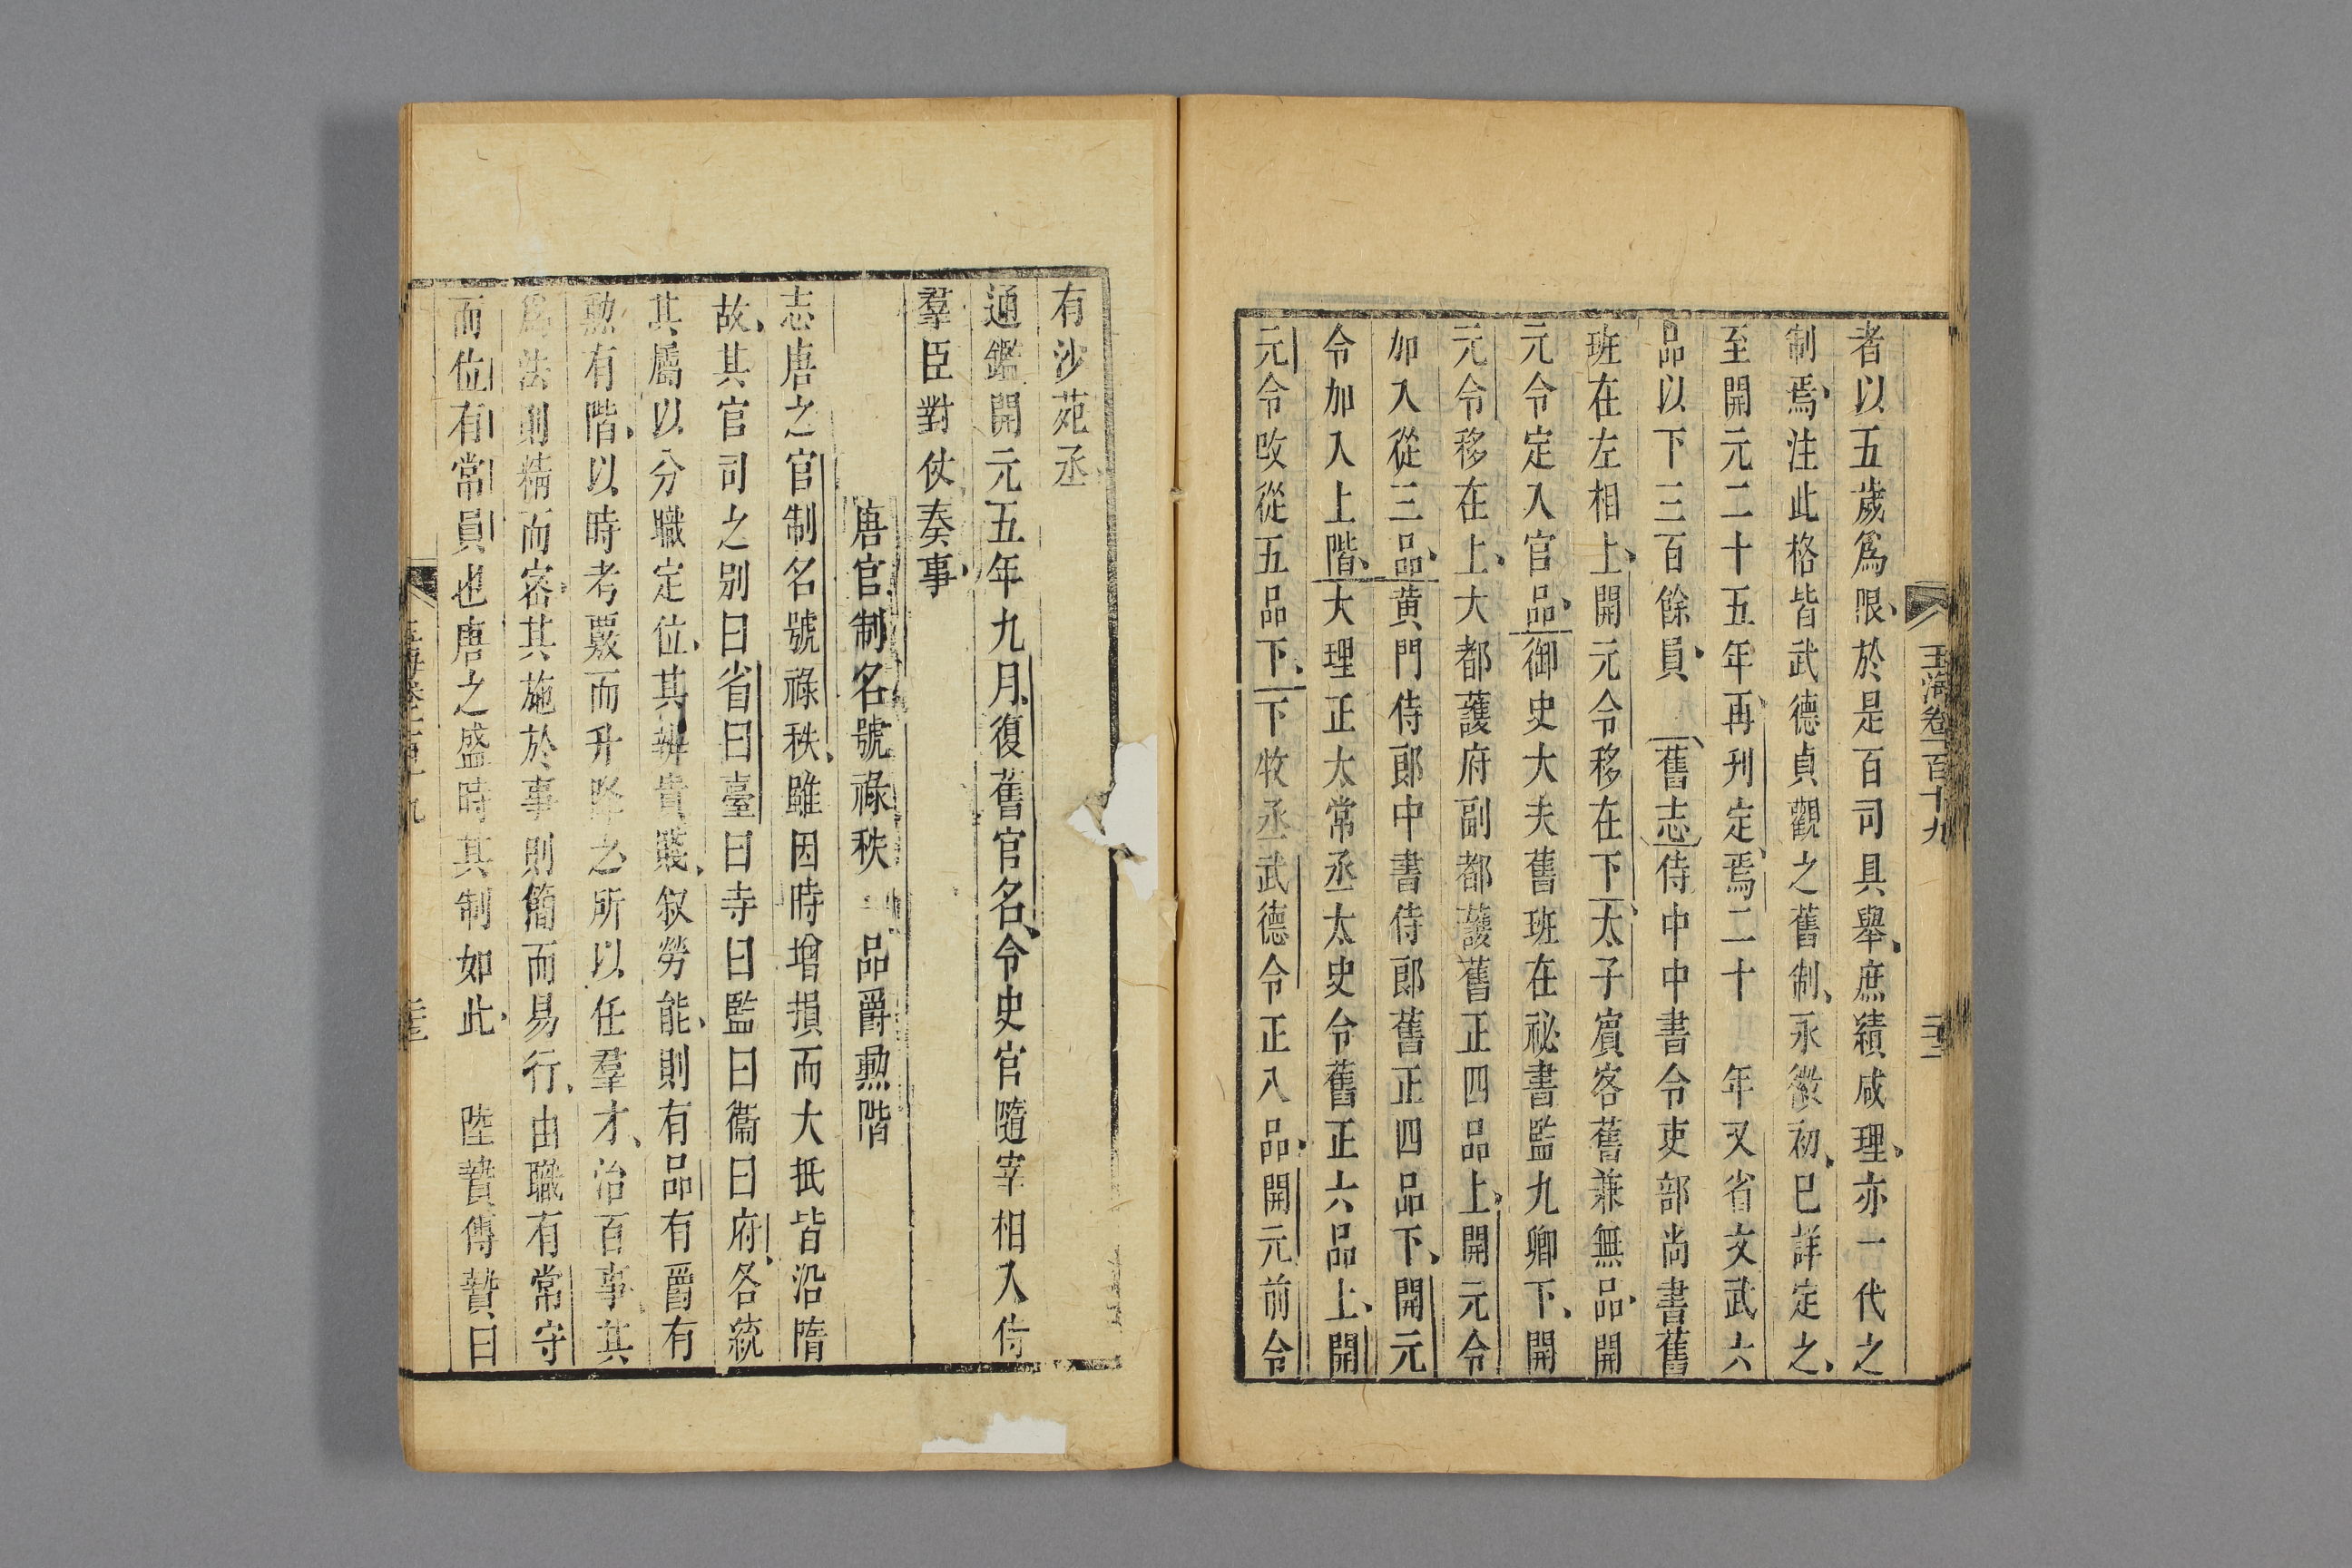 玉海卷一百十九
者以五歲爲限於是百司具舉庶績咸理亦一代之
制焉注此格皆武德貞觀之舊制永徽初已詳定之
至開元二十五年再刋定焉二十 年又省文武六
品以下三百餘員 舊志侍中中書令吏部尚書舊
班在左相上開元令移在下太子賓客舊兼無品開
元令定入官品御史大夫舊班在祕書監九卿下開
元令移在上大都護府副都護舊正四品上開元令
加入從三品黄門侍郎中書侍郎舊正四品下開元
令加入上階大理正太常丞太史令舊正六品上開
元令改從五品下下牧丞武德令正八品開元前令
有沙苑丞
通鑑開元五年九月復舊官名令史官隨宰相入侍
羣臣對仗奏事
唐官制名號祿秩 品爵勲階
志唐之官制名號祿秩雖因時增損而大抵皆沿隋
故其官司之别曰省曰臺曰寺曰監曰衞曰府各統
其屬以分職定位其辨貴賤叙勞能則有品有爵有
勲有階以時考覈而升降之所以任羣才治百事其
爲法則精而宻其施於事則簡而易行由職有常守
而位有常員也唐之盛時其制如此 陸贄傳贄曰
玉海卷一百十九